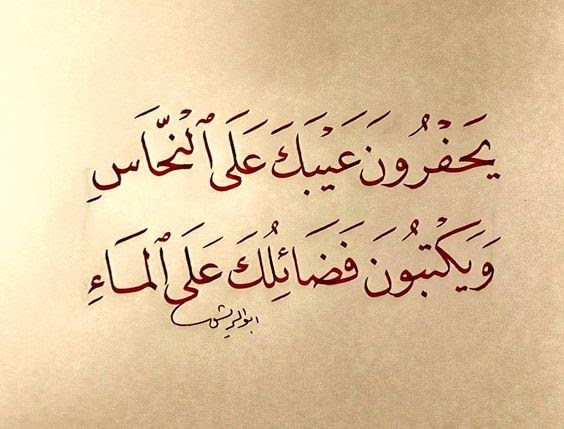 يَحْفُرُونَ عَيْبَكَ عَلَى ٱلنُّحَاسِ
وَيَكْتُبُونَ فَضَائِلُكَ عَلَى ٱلمَاءِ
ابو الريش